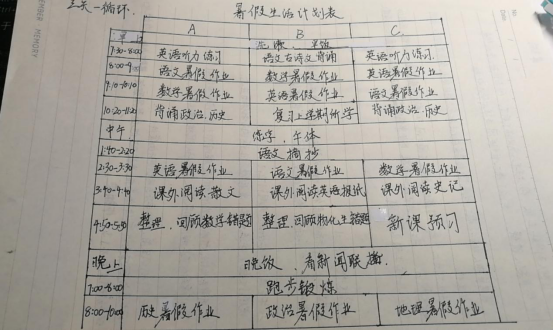 三天一循环.
暑假生活计划表
A B C
早
洗漱、早饭
7:30-8:00 英语听力练习 语文古诗文背诵 英语听力练习
语文暑假作业 数学暑假作业 英语暑假作业
9:10-10:10 数学暑假作业 英语暑假作业 语文暑假作业
10:20-11:20 背诵政治.历史 复习上学期所学 背诵政治.历史
中午 练字,午休
1:40-2:20 语文摘抄
2:30-3:30 英语暑假作业 语文暑假作业 数学暑假作业
3:40-4:40 课外阅读散文 课外阅读英语报纸 课外阅读史记
4:50-5:50 整理.回顾数学错题 整理.回顾物化生错题 新课预习
晚上 晚饭、看新闻联播.
7:00-8:00 跑步锻炼
8:00-10:00 历史暑假作业 政治暑假作业 地理暑假作业